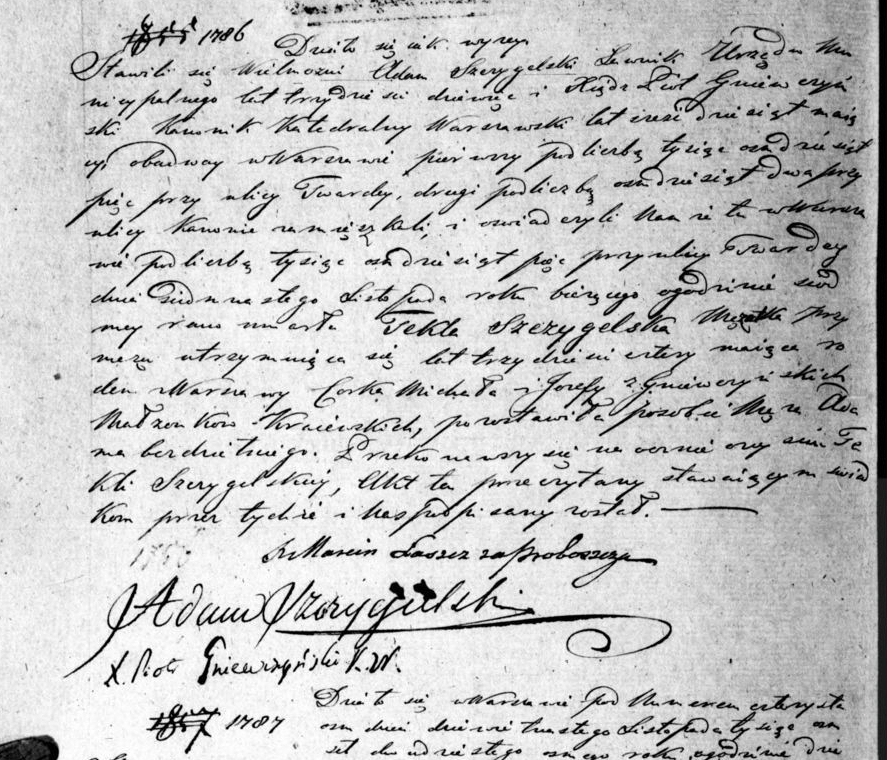 1786 Działo się jak wyżey
Stawili się Wielmożni Adam Szczygelski Ławnik Urzędu Mu
nicypalnego lat trzydzieści dziewięć i Xiądz Piotr Gniewczyń
ski Kanonik Katedralny Warszawski lat sześćdziesiąt maią
cy, obadway w Warszawie pierwszy pod liczbą tysiąc ośmdziesiąt
pięć przy ulicy Twardey, drugi pod liczbą ośmdziesiąt dwa przy
ulicy Kanonie zamięszkali, i oświadczyli Nam że tu w Warsza
wie pod liczbą tysiąc ośmdziesiąt pięć przy ulicy Twardey
dnia siedmnastego Listopada roku bieżącego o godzinie siód
mey rano umarła Tekla Szczygelska Mężatka przy
mężu utrzymuiąca się lat trzydzieści cztery maiąca ro
dem z Warszawy Corka Michała i Jozefy z Gniewczyńskich
Małżonkow Kraiewskich, pozostawiła po sobie Męża Ada
ma bezdzietnego. Przekonawszy się naocznie o zeyściu Te
kli Szczygelskiey, Akt ten przeczytany stawaiącym świad
kom przez tychże i Nas podpisany został.
X Marcin Łaszcz za Proboszcza
Adam Szczygielski
X. Piotr Gniewczyński K. W.
1787 Działo się w Warszawie pod Numerem czterysta
ośm dnia dziewiętnastego Listopada tysiąc ośm
set dwudziestego osmego roku o godzinie dzie